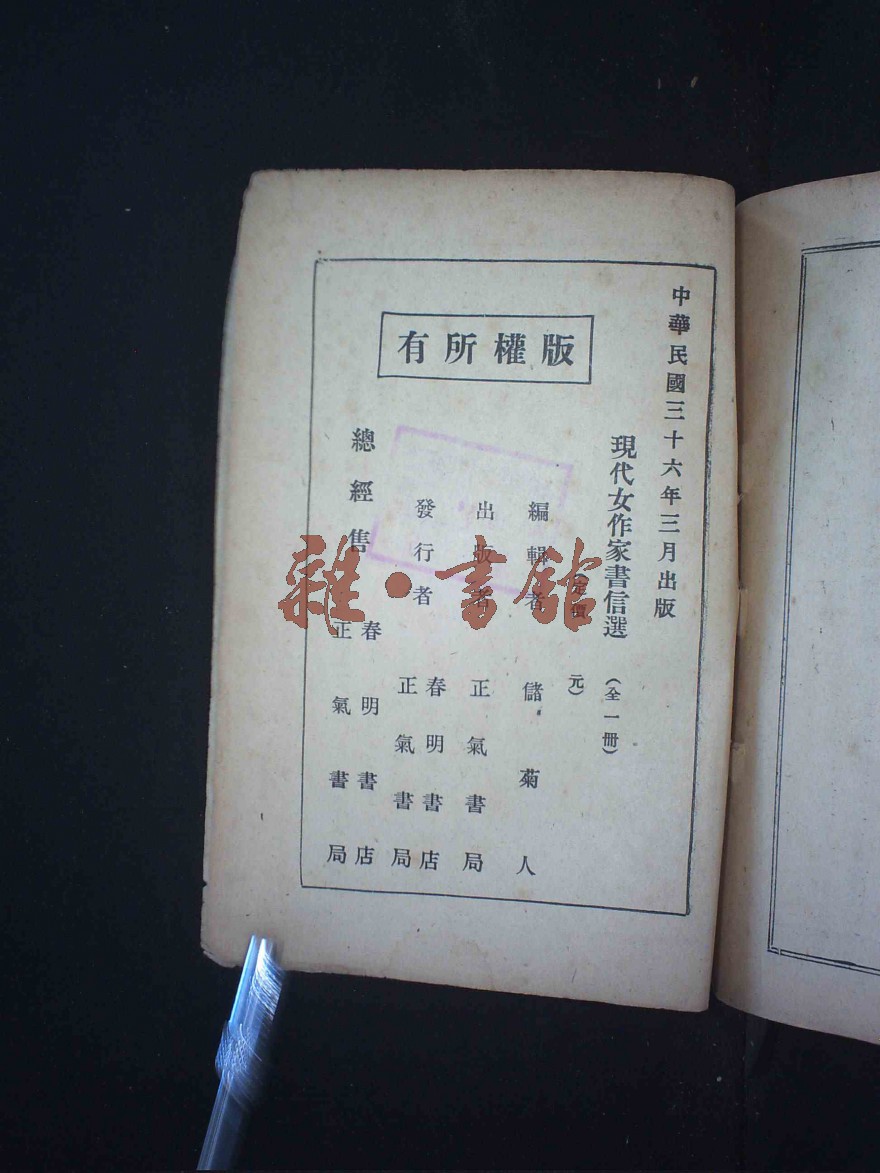 中華民國三十六年三月出版
現代女作家書信選（全一冊）
（定價　元）
版權所有
編輯者　儲菊人
出版者　正氣書局
發行者　春明書店
正氣書局
總經售　春明書店
正氣書局
雜·書館